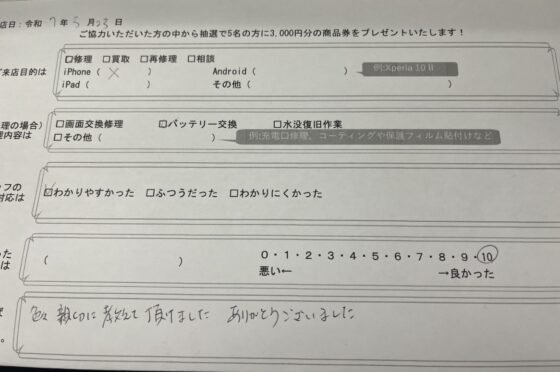 店日：令和 7 年 5 月 23 日
ご協力いただいた方の中から抽選で5名の方に3,000円分の商品券をプレゼントいたします！
ご来店目的は
☑修理 □買取 □再修理 □相談
iPhone（ X ） Android（ ） 例:Xperia 10 II
iPad（ ） その他（ ）
理の場合）
理内容は
□画面交換修理 □バッテリー交換 □水没復旧作業
□その他（ ） 例:充電口修理、コーティングや保護フィルム貼付けなど
ッフの
対応は
☑わかりやすかった □ふつうだった □わかりにくかった
った
は
（ ） 0・1・2・3・4・5・6・7・8・9・10
悪い← →良かった
色々 親切に 教えて 頂けました ありがとうございました
。